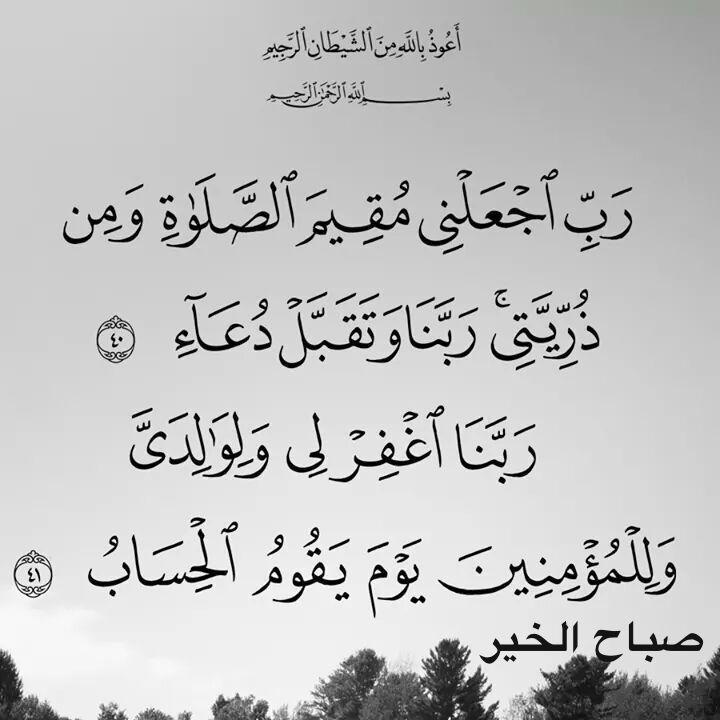 أَعُوذُ بِاللَّهِ مِنَ ٱلشَّيْطَانِ ٱلرَّجِيمِ
بِسْمِ ٱللَّهِ ٱلرَّحْمَٰنِ ٱلرَّحِيمِ
رَبِّ ٱجْعَلْنِى مُقِيمَ ٱلصَّلَوٰةِ وَمِن
ذُرِّيَّتِى ۚ رَبَّنَا وَتَقَبَّلْ دُعَآءِ ٤٠
رَبَّنَا ٱغْفِرْ لِى وَلِوَٰلِدَىَّ
وَلِلْمُؤْمِنِينَ يَوْمَ يَقُومُ ٱلْحِسَابُ ٤١
صباح الخير